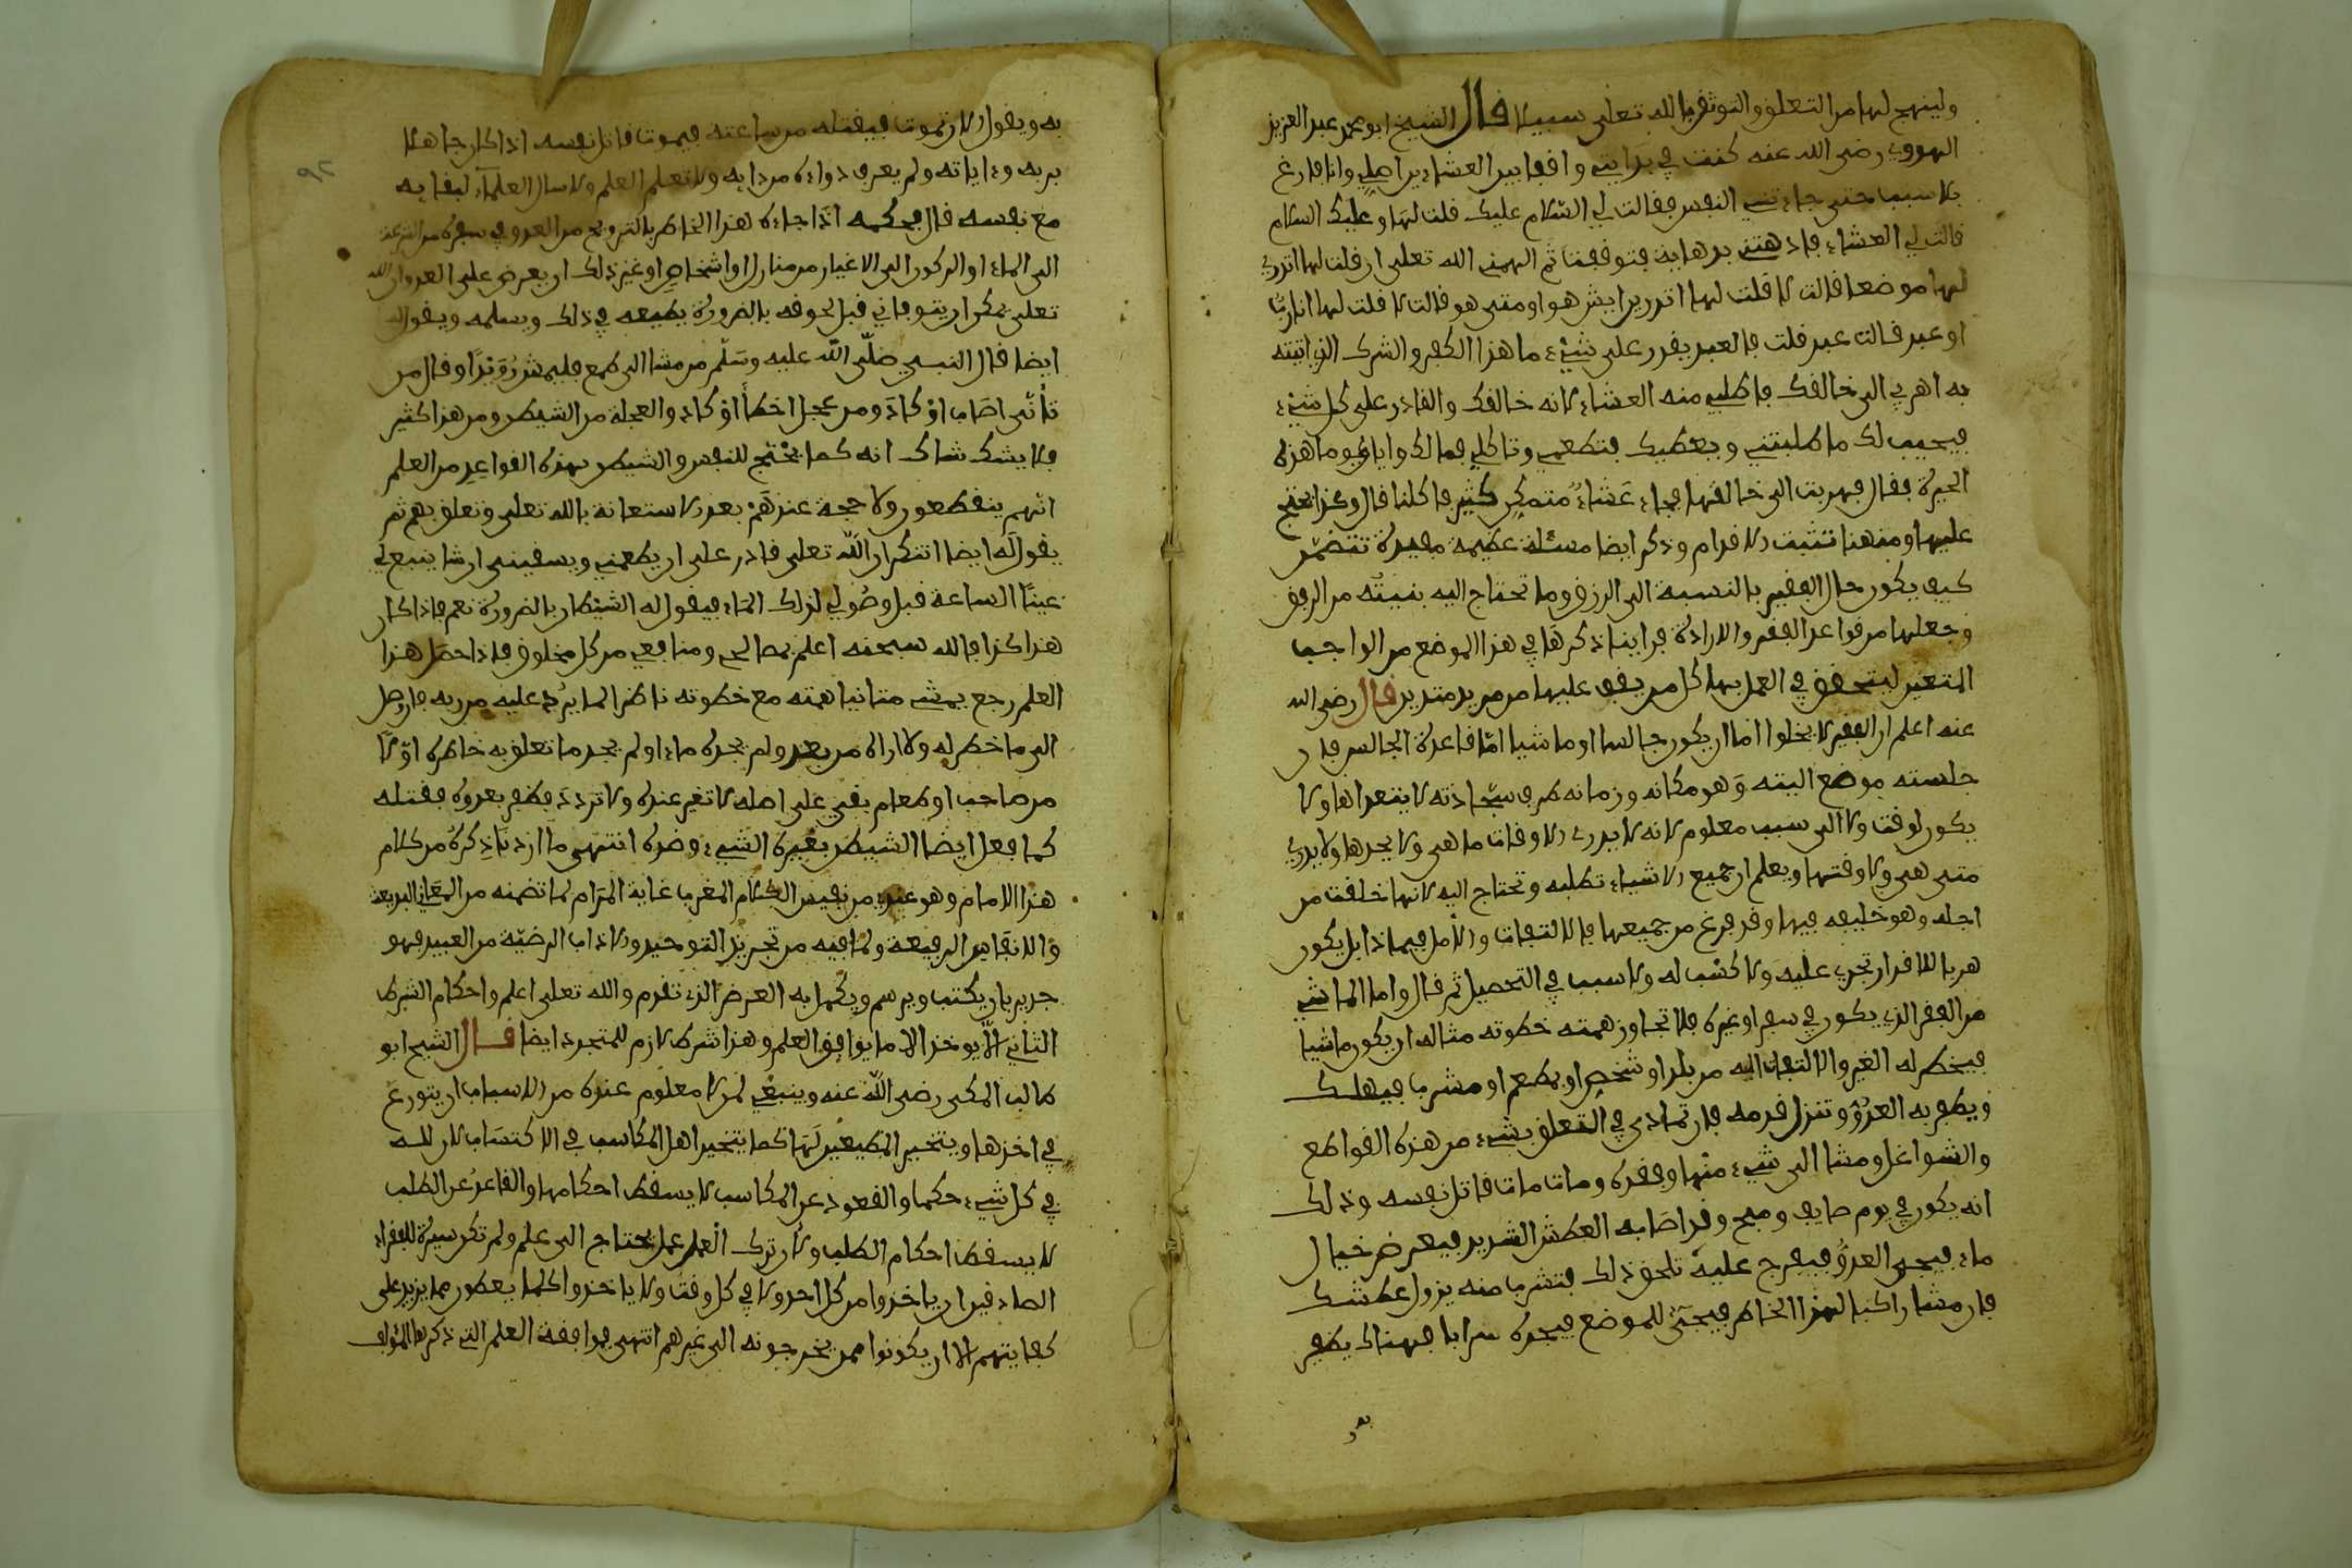 ولينهج لها من التعلق والتوثق بالله تعلى سبيلا قال الشيخ ابو محمد عبد العزيز
الهروي رضى الله عنه كنت في بدايتي واقفا بين العشاءين اصلي وانا فارغ
بلا سبب حتى جاءتني النفس فقالت لي السلام عليك قلت لها وعليك السلام
قالت لي العشاء فادهتني بدهاية فتوقفت ثم الهمني الله تعلى ان قلت لها اتدري
لها موضعا قالت لا قلت لها اتدرين ايش هو او متى هو قالت لا قلت لها انا رب
او عبد قالت عبد قلت فالعبد يقدر على شيء ما هذا الكفر والشرك الذي اتيته
به اهربي الى خالقك فاطلبي منه العشاء لانه خالقك والقادر على كل شيء
فيجيب لك ما طلبتني ويعطيك فتطعمي وتاكلي فما لك واياي وما هذه
الحيرة فقال فهربت الى خالقها فجاء عشاء متمكن كثير فاكلنا قال وكذا نحتج
عليها ومنهنا تثبت الاقدام وذكر ايضا مسئلة عظيمة مفيدة تتضمن
كيف يكون حال الفقير بالنسبة الى الرزق وما تحتاج اليه بنيته من الرفق
وجعلها من قواعد الفقر والارادة فراينا ذكرها في هذا الموضع من الواجب
المتعين ليتحقق في العمل بها كل من يقف عليها من مريد متدين قال رضى الله
عنه اعلم ان الفقير لا يخلوا اما ان يكون جالسا او ماشيا اما قاعدة الجالس فان
جلسته موضع البتة وهو مكانه وزمانه طرف سجادته لا يتعداها ولا
يكون لوقت ولا الى سبب معلوم لانه لا يدري الاوقات ما هي ولا يحدها ولا يدري
متى هي ولا وقتها ويعلم ان جميع الاشياء تطلبه وتحتاج اليه لانها خلقت من
اجله وهو خليفه فيها وقد فرغ من جميعها فالالتفات والامل فيماذا بل يكون
هربا للاقدار تجري عليه ولا كسب له ولا سبب في التحصيل ثم قال واما الماشي
من الفقر الذي يكون في سفر او غيره فلا تجاوز همته خطوته مثاله ان يكون ماشيا
فيخطر له الغير والالتفات اليه من بلد او شخص او مطعم او مشرب فيهلك
ويظفر به العدو وتنزل قدمه فان تمادى في التعلق بشيء من هذه القواطع
والشواغل ومشا الى شيء منها وفقده ومات مات قاتل نفسه وذلك
انه يكون في يوم صايف وميح وقد اصابه العطش الشديد فيعرض خيال
ماء فيجي العدو فيفرح عليه تلحق ذلك فتشرب منه يزول عطشك
فان مشا راكبا لهذا الخاطر فيجيء للموضع فيجده سرابا فهناك يظفر
به ويقول الان تموت فيقتله من ساعته فيموت قاتل نفسه اذا كان جاهلا
بربه وءاياته ولم يعرف دواءه من دايه ولا تعلم العلم ولا سال العلماء لبقايه
مع نفسه قال فحكمه اذا جاءه هذا الخاطر بالترويح من العدو في سفره
الى الماء او الركون الى الاغيار من منازل او اشخاص او غير ذلك ان يعرض على العدو ان الله
تعلى يمكن ان يتوفاني قبل لحوقه بالضرورة يطيعه في ذلك ويسلمه ويقول له
ايضا قال النبي صلى الله عليه وسلم من مشا الى طمع فليمش رويدا وقال من
تأنى اصاب او كاد ومن عجل اخطأ او كاد والعجلة من الشيطن ومن هذا كثير
فلا يشك شاك انه كما يحتج للنفس والشيطن بهذه القواعد من العلم
انهم ينقطعون ولا حجة عندهم بعد الاستعانة بالله تعلى وتعلق بهم ثم
يقول له ايضا اتنكر ان الله تعلى قادر على ان يطعمني ويسقيني ان شا ينبع لي
عينا الساعة قبل وصولي لذلك الماء فيقول له الشيطان بالضرورة نعم فاذا كان
هذا كذا فالله سبحنه اعلم بمصالحي ومنافعي من كل مخلوق فاذا حصل هذا
العلم رجع يمشي متانيا همته مع خطوته ناظرا لما يرد عليه من ربه فان وصل
الى ما خطر له ولا اراه من بعد ولم يجده ماء او لم يجد ما تعلق به خاطره اولا
من صاحب او طعام بقي على اصله لا تغير عنده ولا تردد فظفر بعدوه فقتله
كما فعل ايضا الشيطن بغيره الشيء وضده انتهى ما اردنا ذكره من كلام
هذا الامام وهو عندي من نفيس الكلام المغرب غاية المرام لما تضمنه من المعاني البديعة
والانفاس الرفيعة ولما فيه من تجريد التوحيد والاداب الرضية من العبيد فهو
جدير بان يكتب ويرسم ويكمل به الغرض الذي تقدم والله تعلى اعلم واحكام الشرط
الثاني الا يوخذ الا ما يوافق العلم وهذا شرط لازم للمتجرد ايضا قال الشيخ ابو
طالب المكي رضى الله عنه وينبغي لمن لا معلوم عنده من الاسباب ان يتورع
في اخذها ويتخير المطيعين لها كما يتخير اهل المكاسب في الاكتساب لان لله
في كل شيء حكما والقعود عن المكاسب لا يسقط احكامها والقاعد عن الطلب
لا يسقط احكام الطلب ولان ترك العلم عمل يحتاج الى علم ولم تكن سيرة الفقراء
الصادقين ان ياخذوا من كل احد ولا في كل وقت ولا ياخذوا كلما يعطون مما يزيد على
كفايتهم الا ان يكونوا ممن يخرجونه الى غيرهم انتهى موافقة العلم التي ذكرها المؤلف